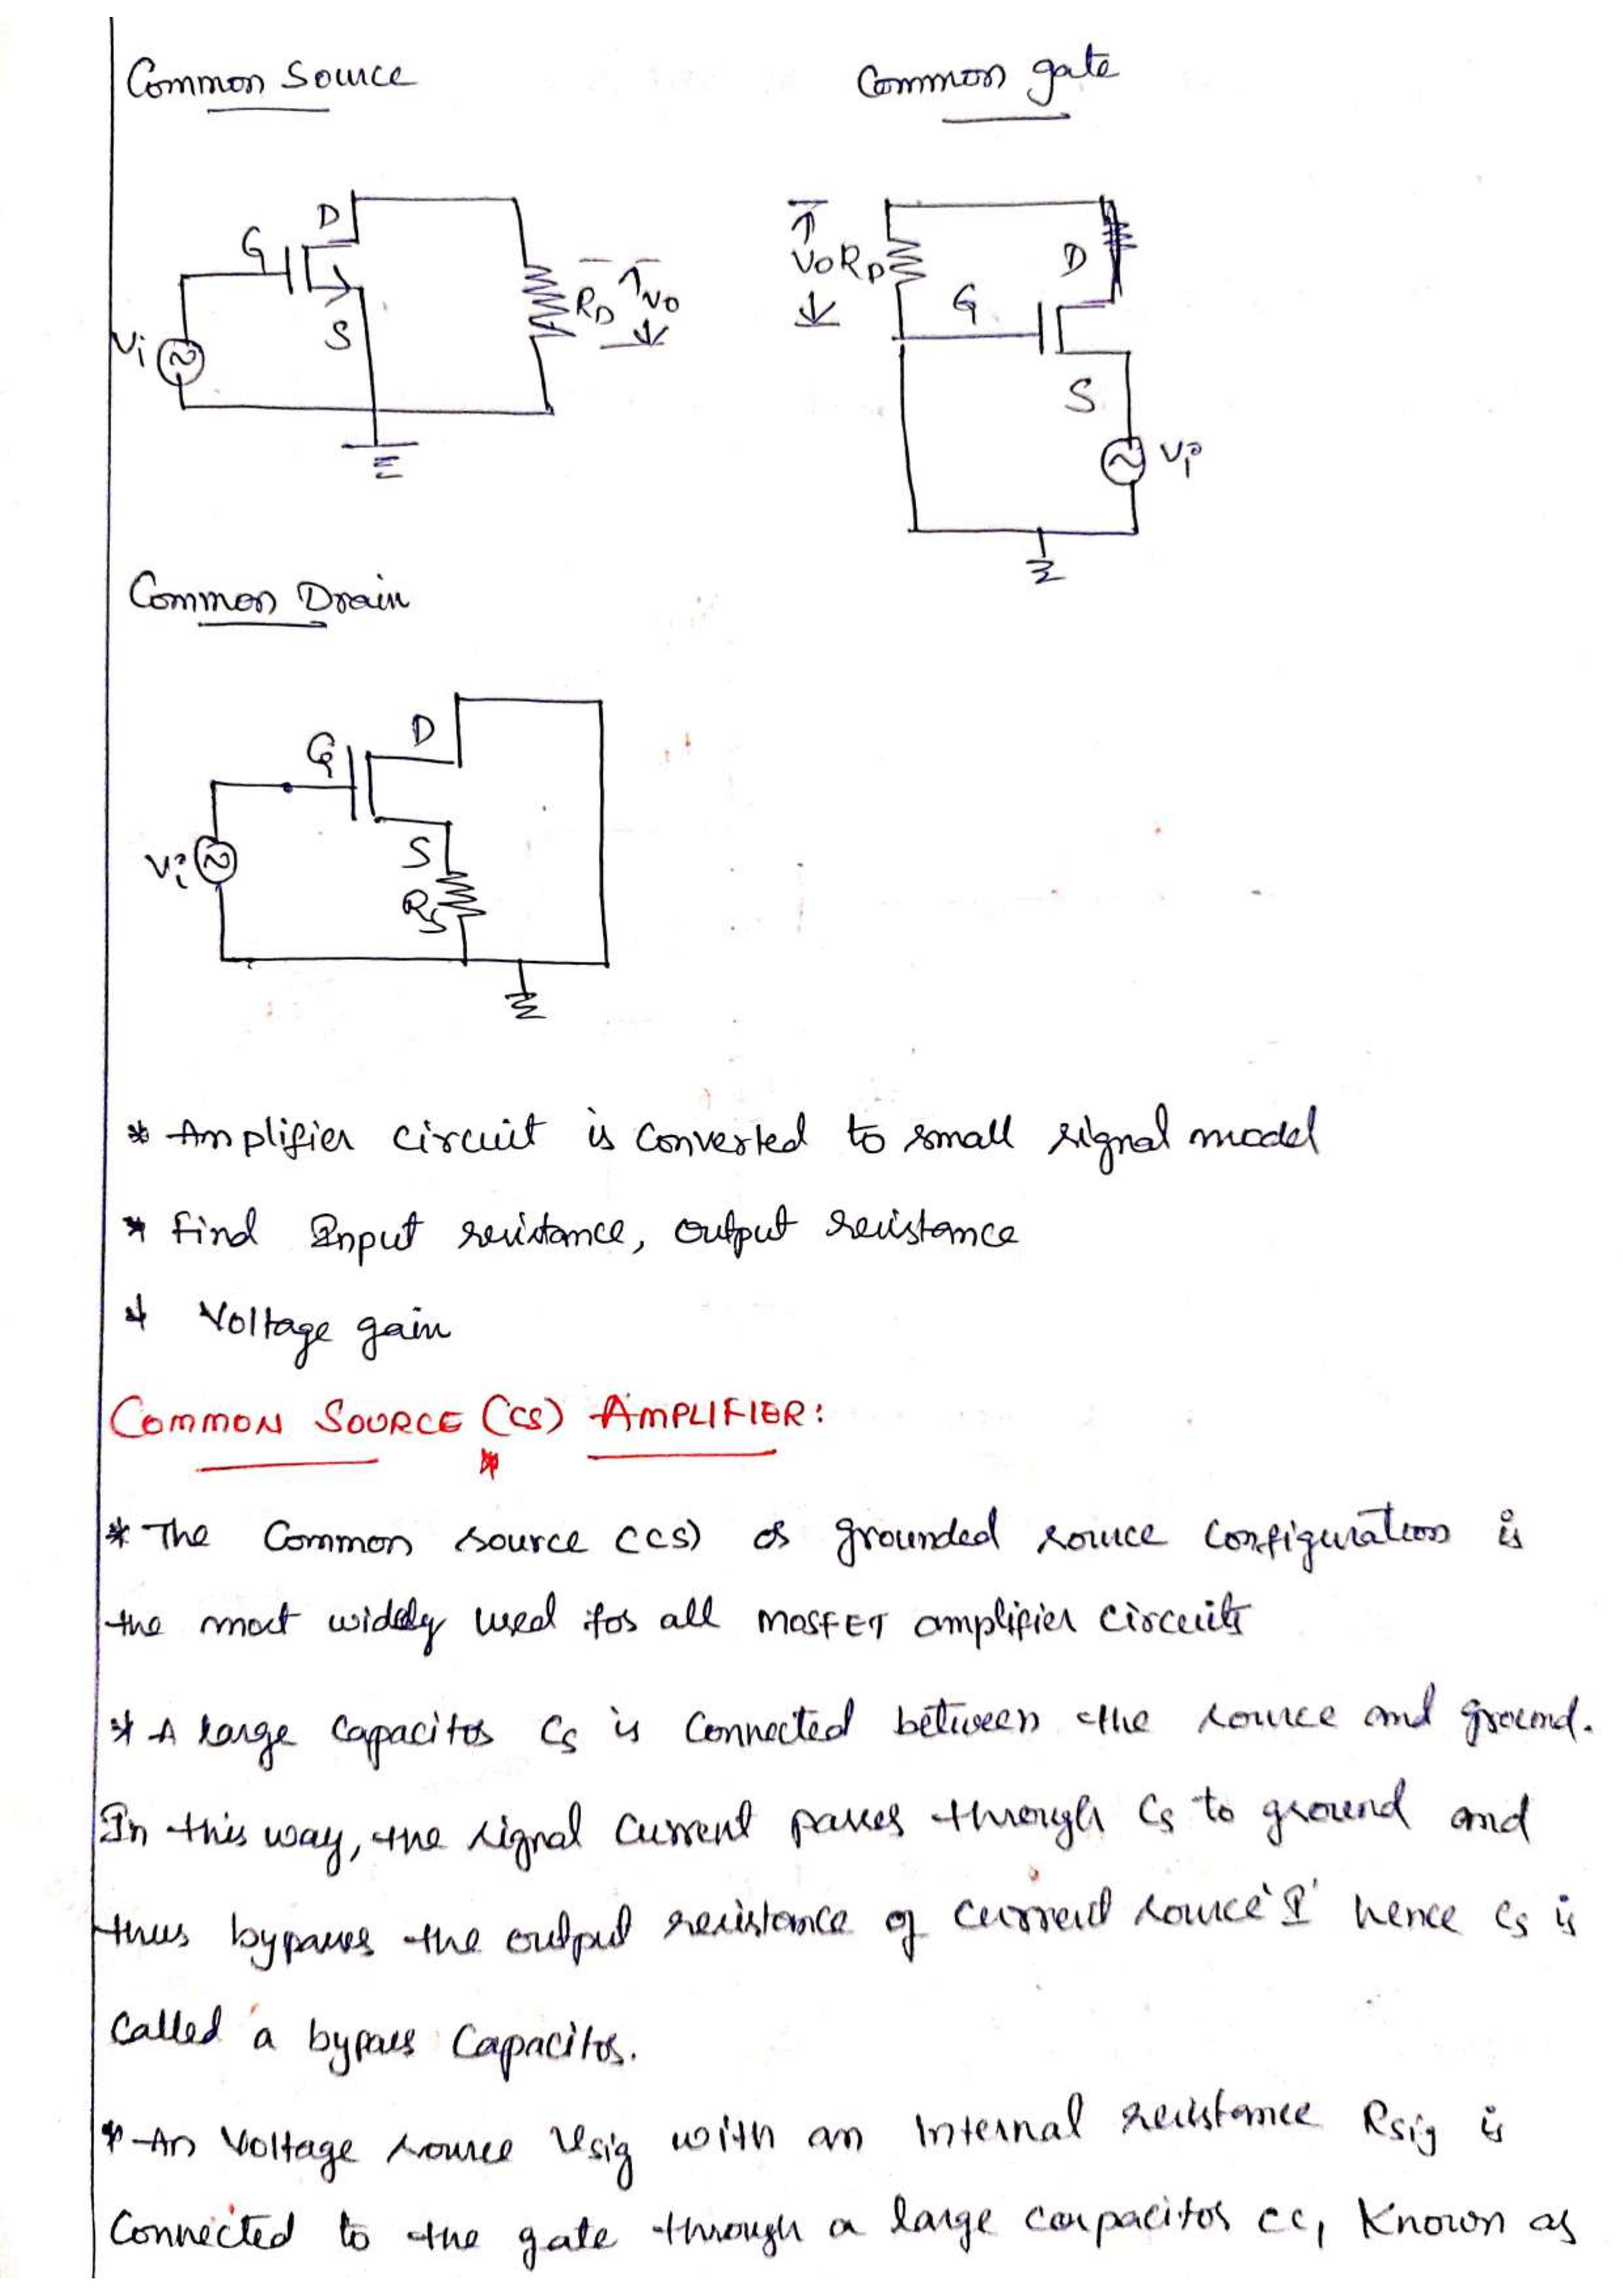 Common Source
Common gate
D
G
S
Vi
RD
Vo
Vo
RD
D
G
S
Vi
Common Drain
D
G
S
Vi
RS
* Amplifier circuit is converted to small signal model
* Find Input resistance, output resistance
* Voltage gain
COMMON SOURCE (CS) AMPLIFIER:
* The Common source (CS) or grounded source configuration is
the most widely used for all MOSFET amplifier circuits
* A large capacitor Cs is connected between the source and ground.
In this way, the signal current passes through Cs to ground and
thus bypasses the output resistance of current source 'I' hence Cs is
called a bypass capacitor.
* An Voltage source Vsig with an Internal resistance Rsig is
Connected to the gate through a large capacitor CC1 Known as